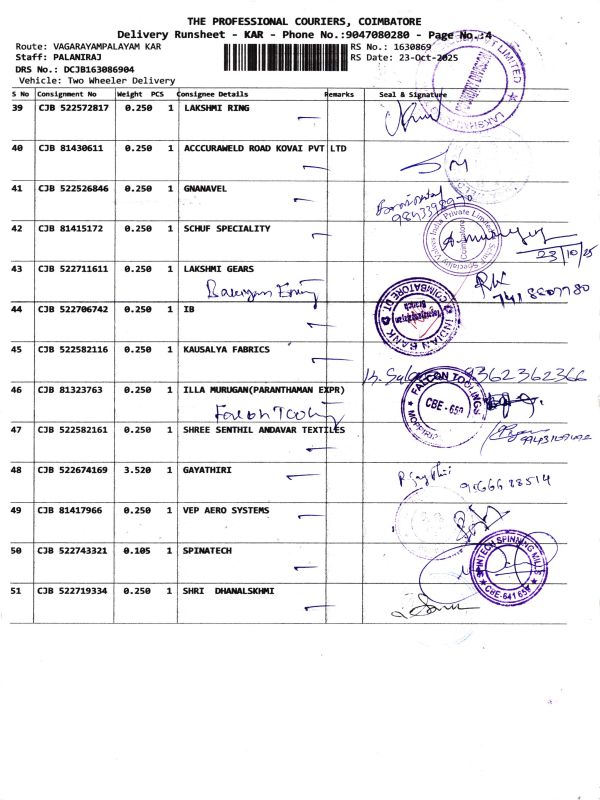 THE PROFESSIONAL COURIERS, COIMBATORE
Delivery Runsheet - KAR - Phone No.:9047080280 - Page No.:4
Route: VAGARAYAMPALAYAM KAR RS No.: 1630869
Staff: PALANIRAJ RS Date: 23-Oct-2025
DRS No.: DCJB163086904
Vehicle: Two Wheeler Delivery
S No Consignment No Weight PCS Consignee Details Remarks Seal & Signature
39 CJB 522572817 0.250 1 LAKSHMI RING
40 CJB 81430611 0.250 1 ACCCURAWELD ROAD KOVAI PVT LTD
41 CJB 522526846 0.250 1 GNANAVEL
9843398970
42 CJB 81415172 0.250 1 SCHUF SPECIALITY
India Private Limited
Coimbatore
23/10/25
43 CJB 522711611 0.250 1 LAKSHMI GEARS
7418607780
44 CJB 522706742 0.250 1 IB
INDIAN BANK
COIMBATORE DT
Branch
45 CJB 522582116 0.250 1 KAUSALYA FABRICS
9362362366
46 CJB 81323763 0.250 1 ILLA MURUGAN(PARANTHAMAN EXPR)
Falcon Tooling
FALCON TOOLINGS
CBE - 659
47 CJB 522582161 0.250 1 SHREE SENTHIL ANDAVAR TEXTILES
48 CJB 522674169 3.520 1 GAYATHIRI
9566628514
49 CJB 81417966 0.250 1 VEP AERO SYSTEMS
50 CJB 522743321 0.105 1 SPINATECH
SPINTECH SPINNING MILLS
CBE-641 659
51 CJB 522719334 0.250 1 SHRI DHANALSKHMI